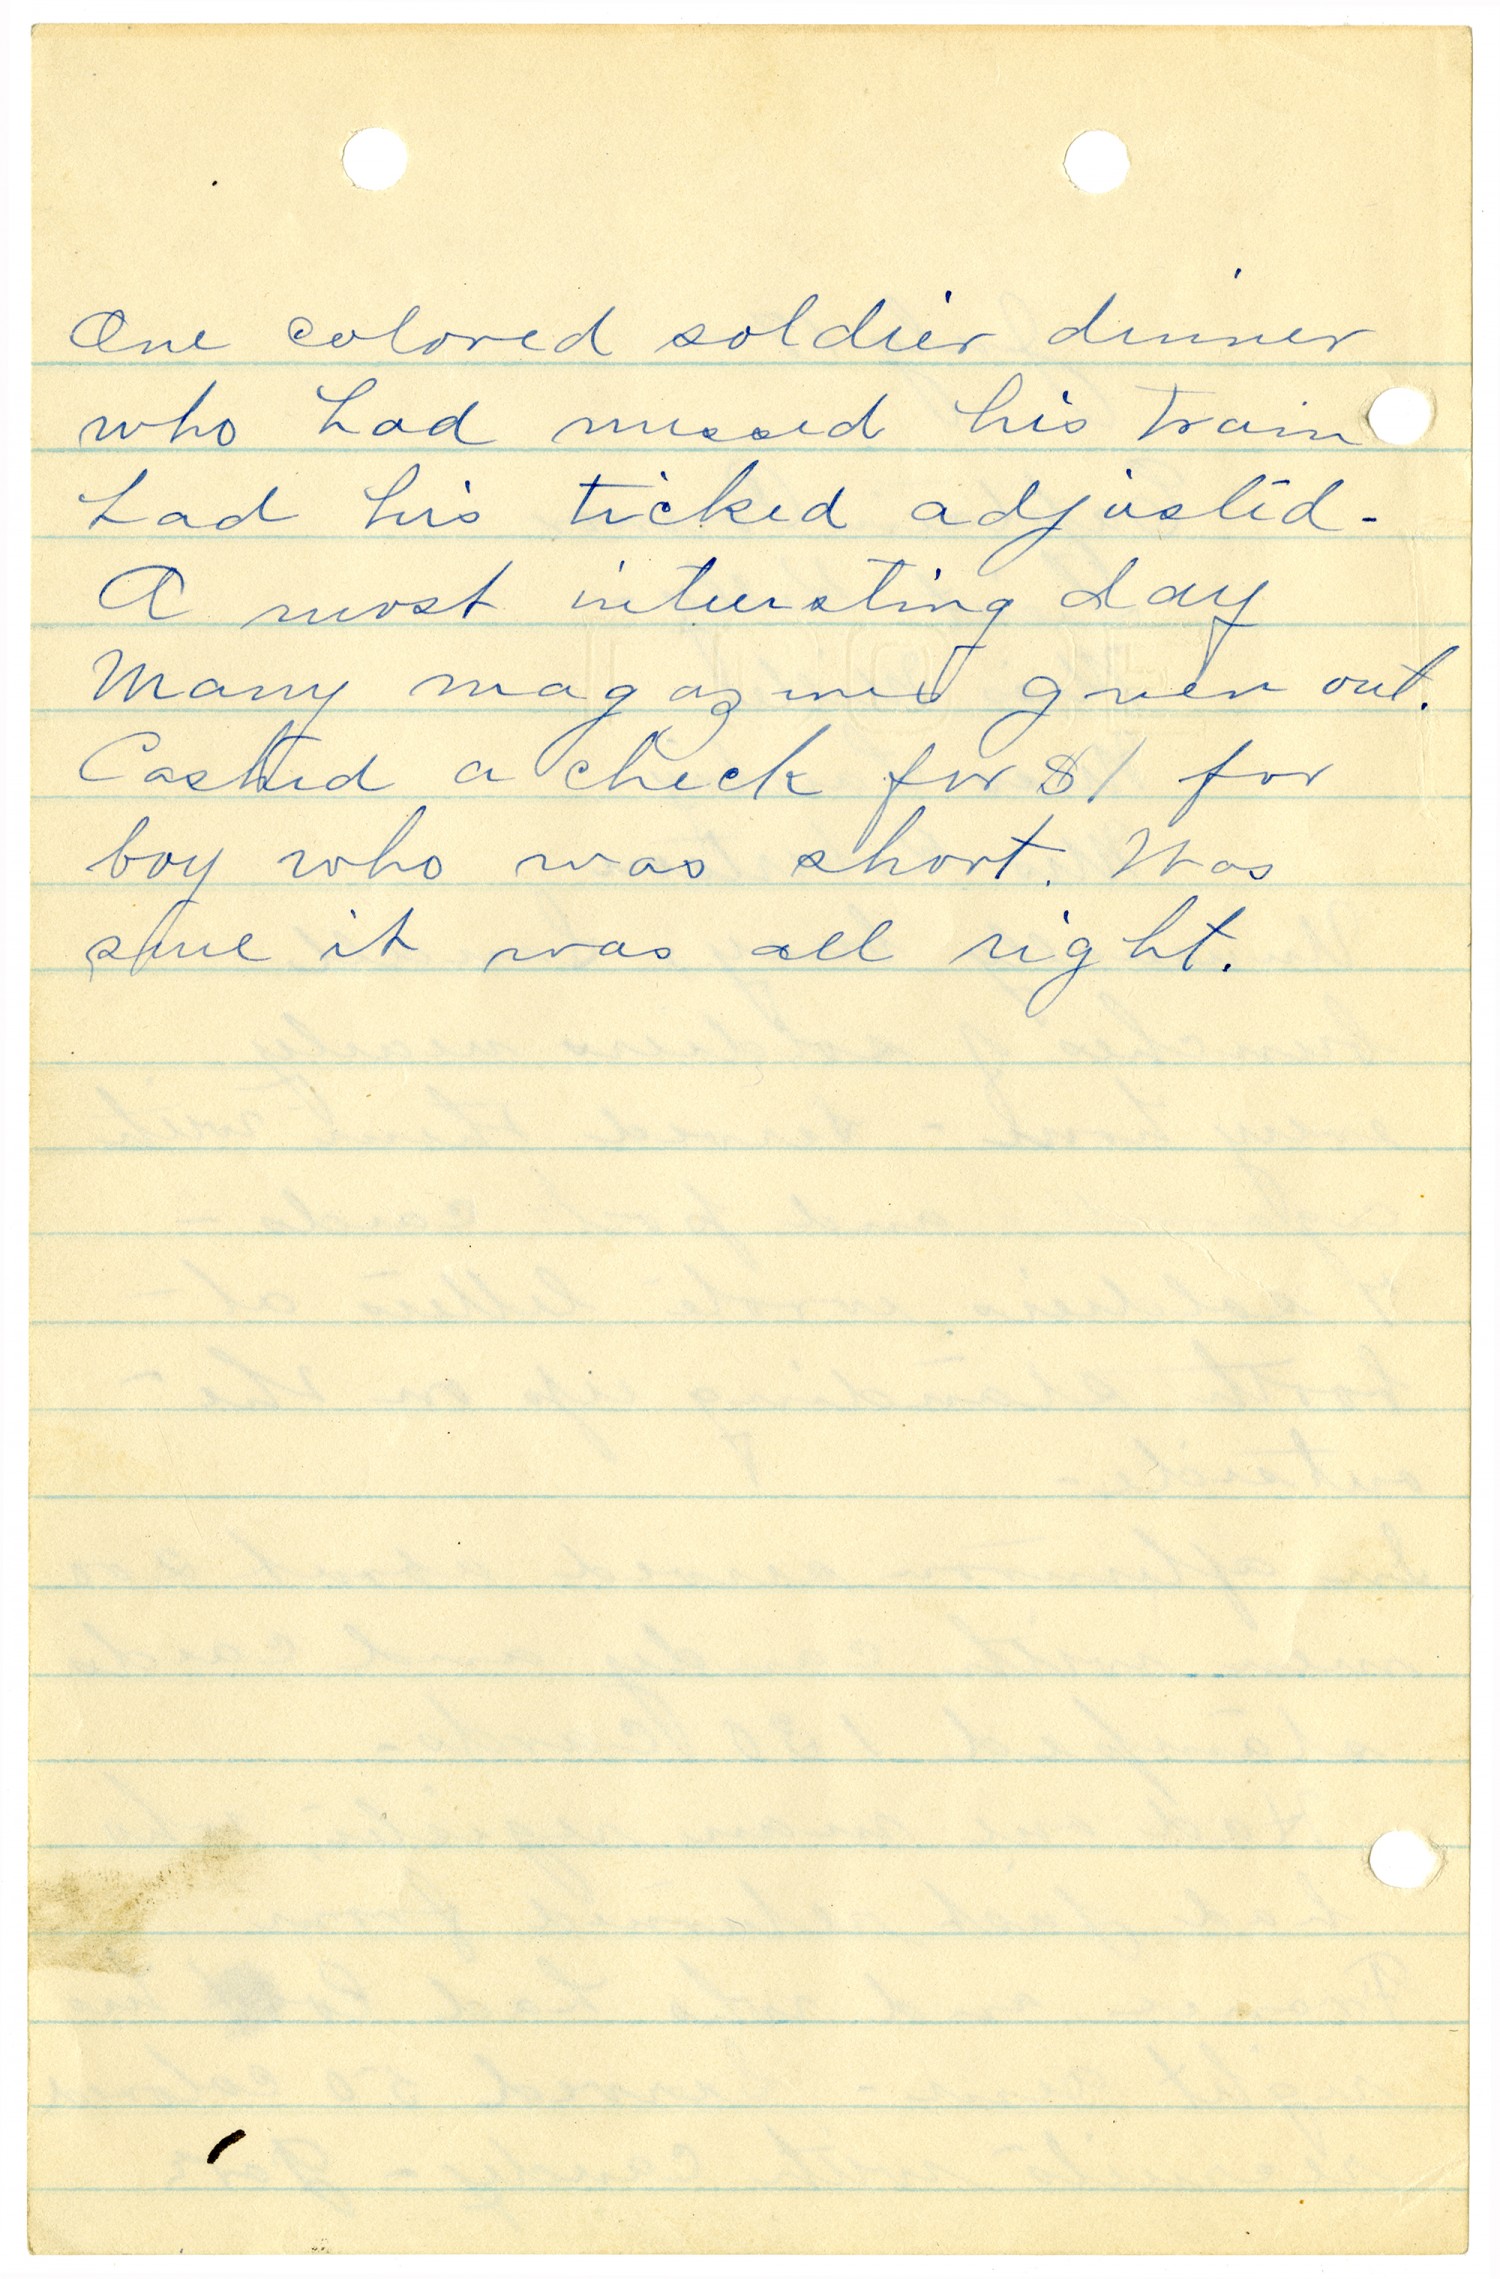 One colored soldier dinner
who had missed his train
had his ticked adjusted-
A most interesting day
Many magazines given out.
Cashed a check for $1 for
boy who was short. Was
sure it was all right.